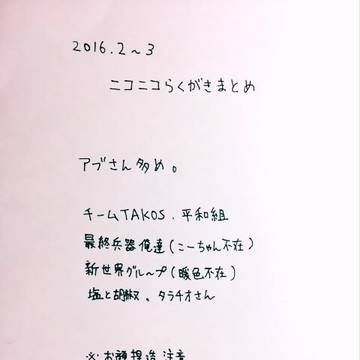 2016.2～3
ニコニコらくがきまとめ
アブさん多め。
チームTAKOS、平和組
最終兵器俺達(こーちゃん不在)
新世界グループ(暖色不在)
塩と胡椒、タラチオさん
※お顔捏造注意